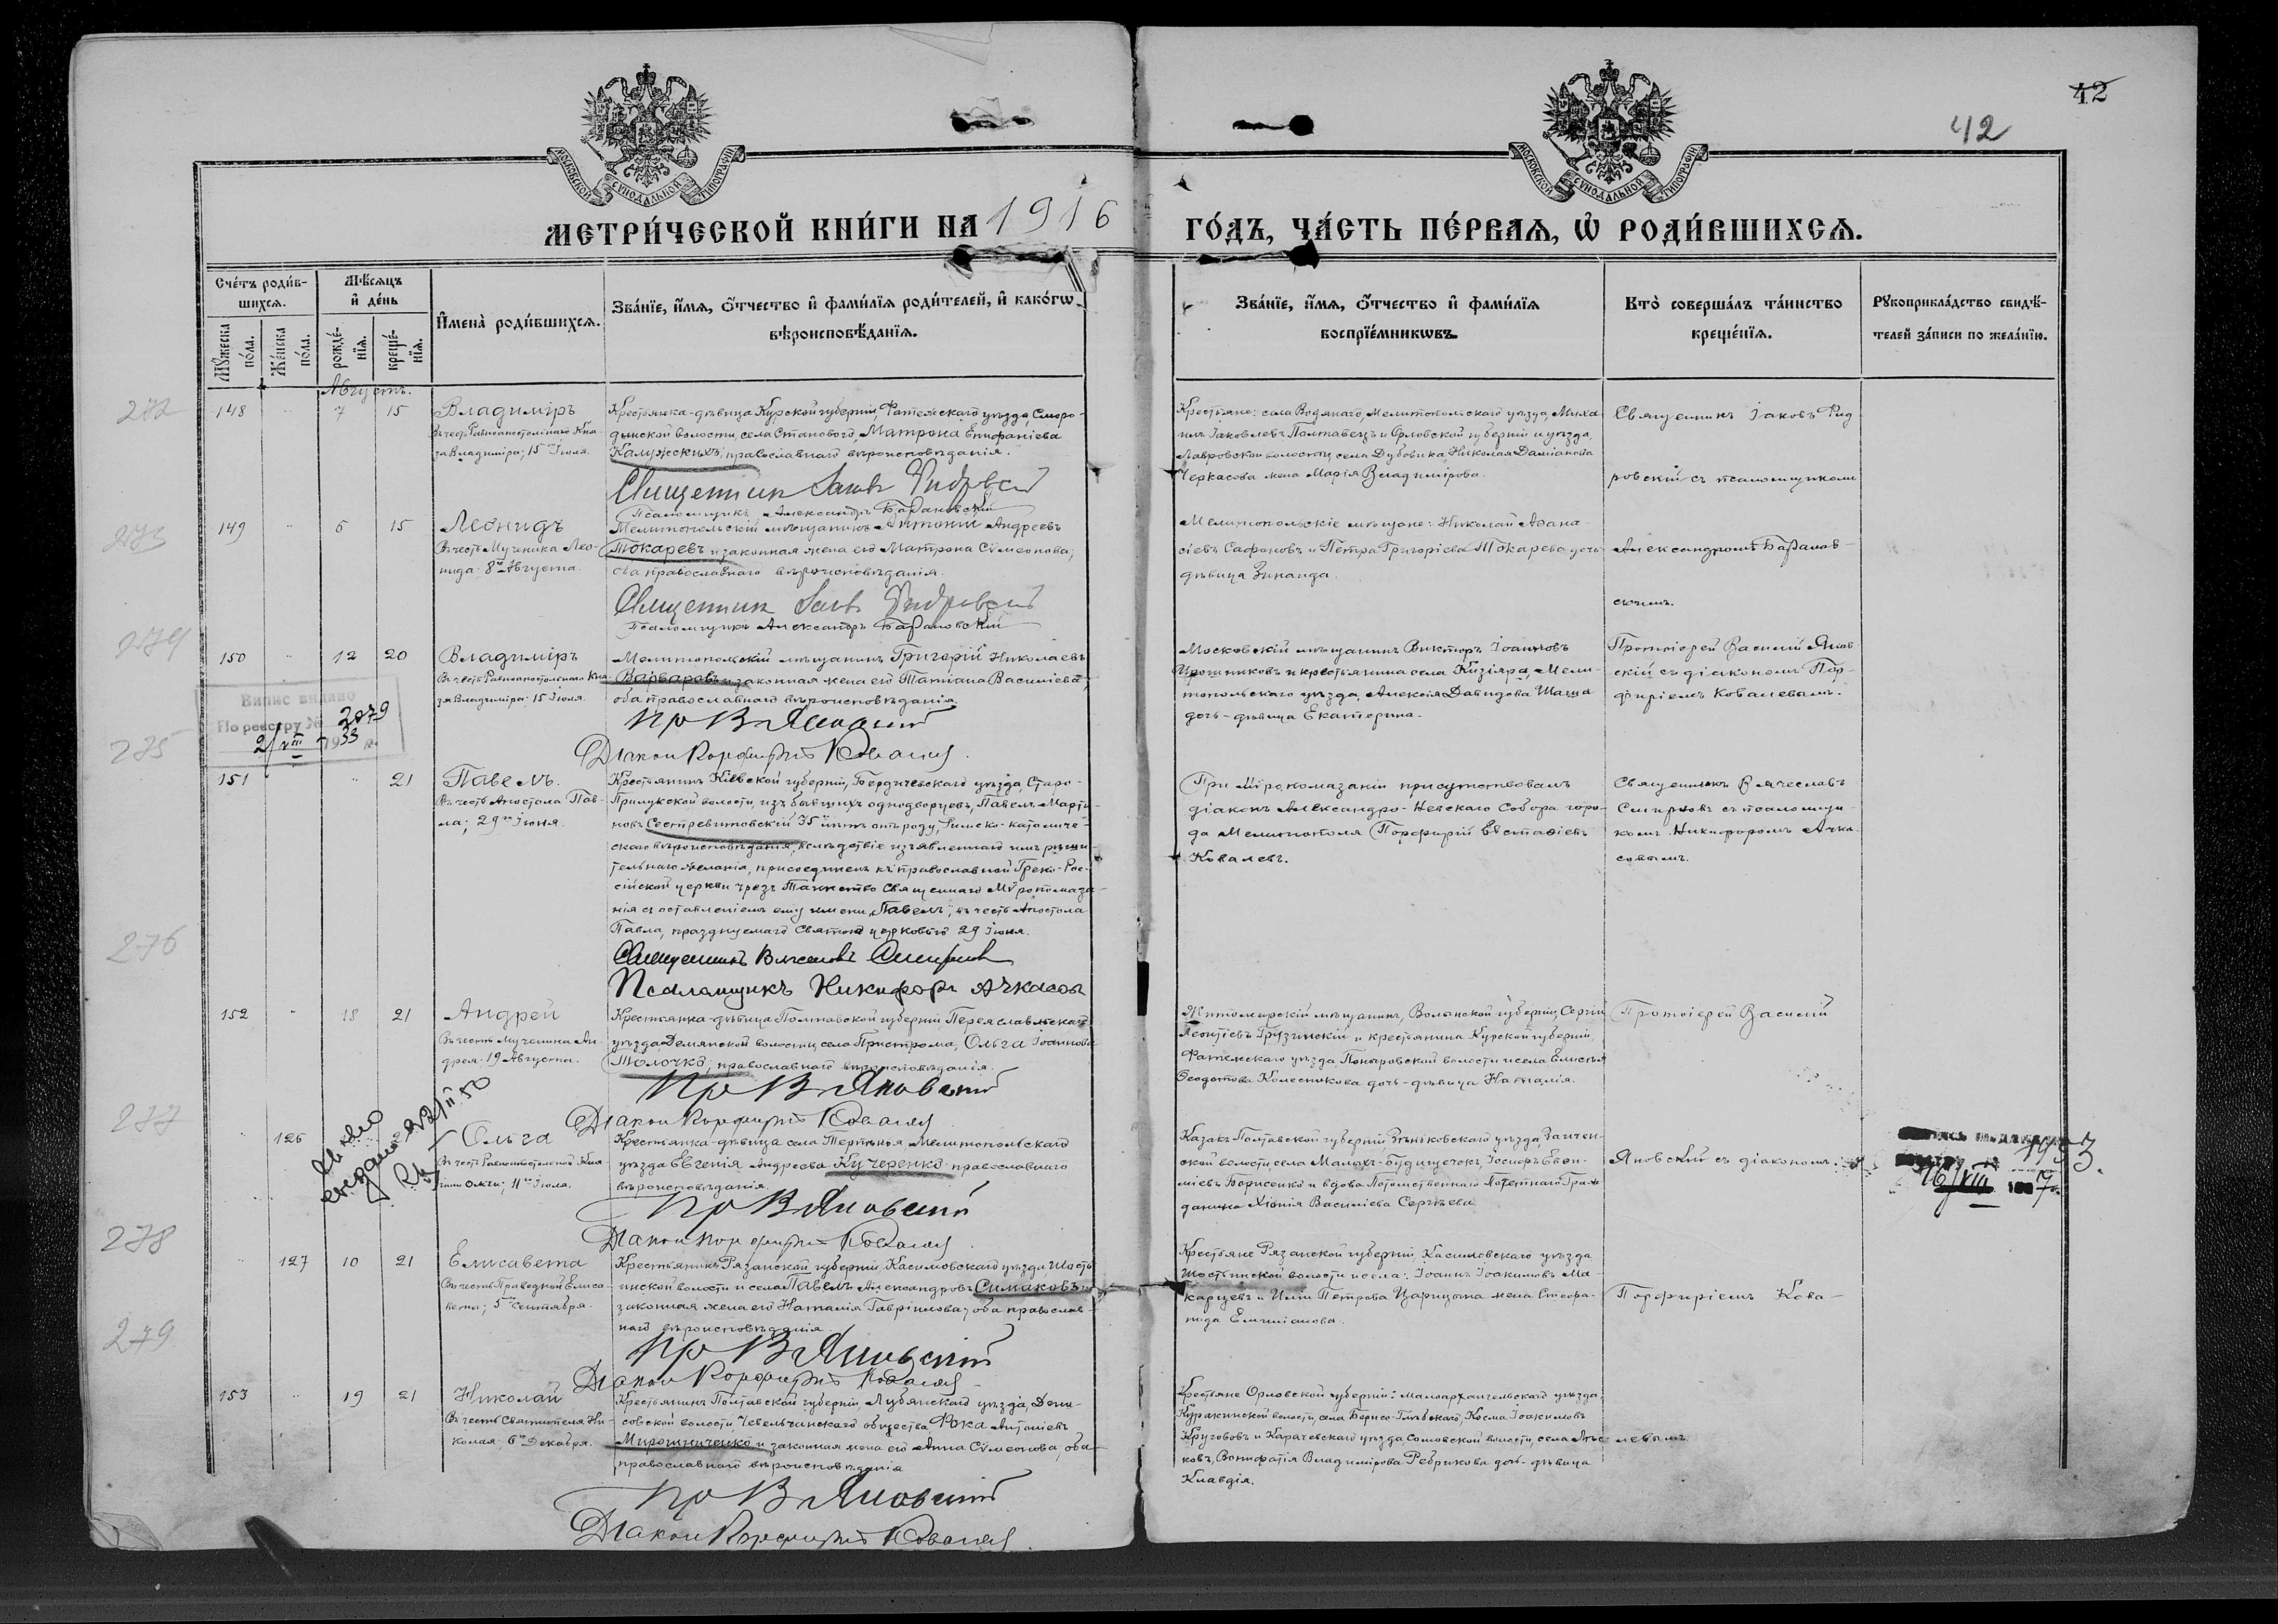 42
42
МОСКОВСКОЙ СѴНОДАЛЬНОЙ ТИПОГРАФІИ
МОСКОВСКОЙ СѴНОДАЛЬНОЙ ТИПОГРАФІИ
МЕТРИ́ЧЕСКОЙ КНИ́ГИ НА 1916
ГО́ДЪ, ЧА́СТЬ ПЕ́РВАЯ, Ѡ РОДИ́ВШИХСЯ.
Сче́тъ роди́в-
шихся.
Мѣ́сяцъ
и де́нь
Имена̀ роди́вшихся.
Зва́нїе, и́мя, о́тчество и фами́лїя роди́телей, и како́гѡ
вѣроисповѣ́данїя.
Мꙋ́жеска по́ла.
Же́нска по́ла.
рожде́-
нїя.
креще́-
нїя.
Зва́нїе, и́мя, о́тчество и фами́лїя
воспрїе́мникѡвъ.
Кто̀ соверша́лъ та́инство
креще́нїя.
Рꙋкоприкла́дство свидѣ́-
телей за́писи по жела́нїю.
Августъ.
272
148 " 7 15 Владиміръ
Въ честь Равноапостольнаго Кня-
за Владиміра; 15го Іюля.
Крестьянка-дѣвица Курской губерніи, Фатежскаго уѣзда, Сморо-
дынской волости, села Становаго, Матрона Епифаніева
Калужскихъ; православнаго вѣроисповѣданія.
Священникъ Іаковъ
Псаломщикъ Александръ Барановскій
Крестьяне: села Водянаго, Мелитопольскаго уѣзда, Миха-
илъ Іаковлевъ Полтавецъ и Орловской губерніи и уѣзда,
Лавровской волости, села Дубовика, Николая Даміанова
Черкасова жена Марія Владимірова.
Священникъ Іаковъ Фид-
ровскій съ псаломщикомъ
273
149 " 6 15 Леонидъ
Въ честь Мученика Лео-
нида: 8го Августа.
Мелитопольскій мѣщанинъ Антоній Андреевъ
Токаревъ и законная жена его Матрона Сѵмеонова;
оба православнаго вѣроисповѣданія.
Священникъ Іаковъ
Псаломщикъ Александръ Барановскій
Мелитопольскіе мѣщане: Николай Аѳана-
сіевъ Сафоновъ и Петра Григоріева Токарева дочь-
дѣвица Зинаида.
Александромъ Баранов-
скимъ.
274
150 " 12 20 Владиміръ
Въ честь Равноапостольнаго Кня-
зя Владиміра: 15 Іюля.
Мелитопольскій мѣщанинъ Григорій Николаевъ
Варваровъ и законная жена его Татіана Василіева;
оба православнаго вѣроисповѣданія.
Пр В Яновскій
Діаконъ Порфирій Ковалевъ
Московскій мѣщанинъ Викторъ Іоанновъ
и крестьянина села Кизіяра, Мели-
топольскаго уѣзда, Алексія Давидова Шаша
дочь-дѣвица Екатерина.
Протоіерей Василій Янов-
скій съ діакономъ Пор-
фиріемъ Ковалевымъ.
Випис видано
По реєстру № 2079
2/VIII 1933 р.
275
151 " 21 Павелъ.
Въ честь Апостола Пав-
ла; 29го Іюня.
Крестьянинъ Кіевской губерніи, Бердичевскаго уѣзда, Старо-
Прилукской волости, изъ бывшихъ однодворцевъ, Павелъ Марти-
новъ Сестревитовскій 35 лѣтъ отъ роду, Римско-католиче-
скаго вѣроисповѣданія, вслѣдствіе изъявленнаго имъ рѣши-
тельнаго желанія, присоединенъ къ православной Греко-Рос-
сійской церкви чрезъ Таинство Священнаго Мѵропомаза-
нія съ оставленіемъ ему имени „Павелъ“, въ честь Апостола
Павла, празднуемаго Святою церковью 29 Іюня.
Священникъ Вячеславъ Смирновъ
Псаломщикъ Никифоръ Ачкасовъ
При Мѵропомазаніи присутствовалъ
діаконъ Александро-Невскаго Собора горо-
да Мелитополя Порфирій Евстаѳіевъ
Ковалевъ.
Священникъ Вячеславъ
Смирновъ съ псаломщи-
комъ Никифоромъ Ачка-
совымъ.
276
152 " 18 21 Андрей
Въ честь Мученика Ан-
дрея: 19 Августа.
Крестьянка-дѣвица Полтавской губерніи Переяславльскаго
уѣзда Демянской волости, села Пристрома, Ольга Іоаннова
Толочко; православнаго вѣроисповѣданія.
Пр В Яновскій
Діаконъ Порфирій Ковалевъ
Житомирскій мѣщанинъ, Волынской губерніи, Сергій
Леонтіевъ Грузинскій и крестьянина Курской губерніи
Фатежскаго уѣзда, Поныровской волости и села Елисея
Ѳеодотова Колесникова дочь-дѣвица Наталія.
Протоіерей Василій
277
" 126 21 Ольга
Въ честь Равноапостольной Кня-
гини Ольги; 11го Іюля.
Крестьянка-дѣвица села Терпѣнія Мелитопольскаго
уѣзда Евгенія Андреева Кучеренко православнаго
вѣроисповѣданія.
Пр В Яновскій
Діаконъ Порфирій Ковалевъ
Казакъ Полтавской губерніи, Зѣньковскаго уѣзда,
ской волости, села Малыхъ-Будищечекъ, Іосифъ Евѳи-
міевъ Борисенко и вдова Потомственнаго Почетнаго Граж-
данина Хіонія Василіева Сергѣева
Яновскій съ діакономъ
1953.
16/VIII 7
278
" 127 10 21 Елисавета
Въ честь Праведной Елиса-
веты; 5го Сентября.
Крестьянинъ Рязанской губерніи, Касимовскаго уѣзда Шость-
инской волости и села Павелъ Александровъ Симаковъ и
законная жена его Наталія Гавріилова; оба православ-
наго вѣроисповѣданія.
Пр В Яновскій
Діаконъ Порфирій Ковалевъ
Крестьяне Рязанской губерніи, Касимовскаго уѣзда
Шостьинской волости и села: Іоаннъ Іоакимовъ Ма-
карцевъ и Иліи Петрова Царицына жена Стефа-
нида Емиліанова.
Порфиріемъ Кова-
279
153 " 19 21 Николай
Въ честь Святителя Ни-
колая: 6го Декабря.
Крестьянинъ Полтавской губерніи, Лубянскаго уѣзда, Дени-
совской волости, Чевельчинскаго общества, Фока Антоніевъ
Мирошниченко и законная жена его Анна Сѵмеонова; оба
православнаго вѣроисповѣданія
Пр В Яновскій
Діаконъ Порфирій Ковалевъ
Крестьяне Орловской губерніи: Малоархангельскаго уѣзда,
Куракинской волости, села Борисо-Глѣбскаго, Косма Іоакимовъ
Круговъ и Карачевскаго уѣзда Сомовской волости, села
ковъ, Вонифатія Владимірова Ребрикова дочь-дѣвица
Клавдія.
левымъ.